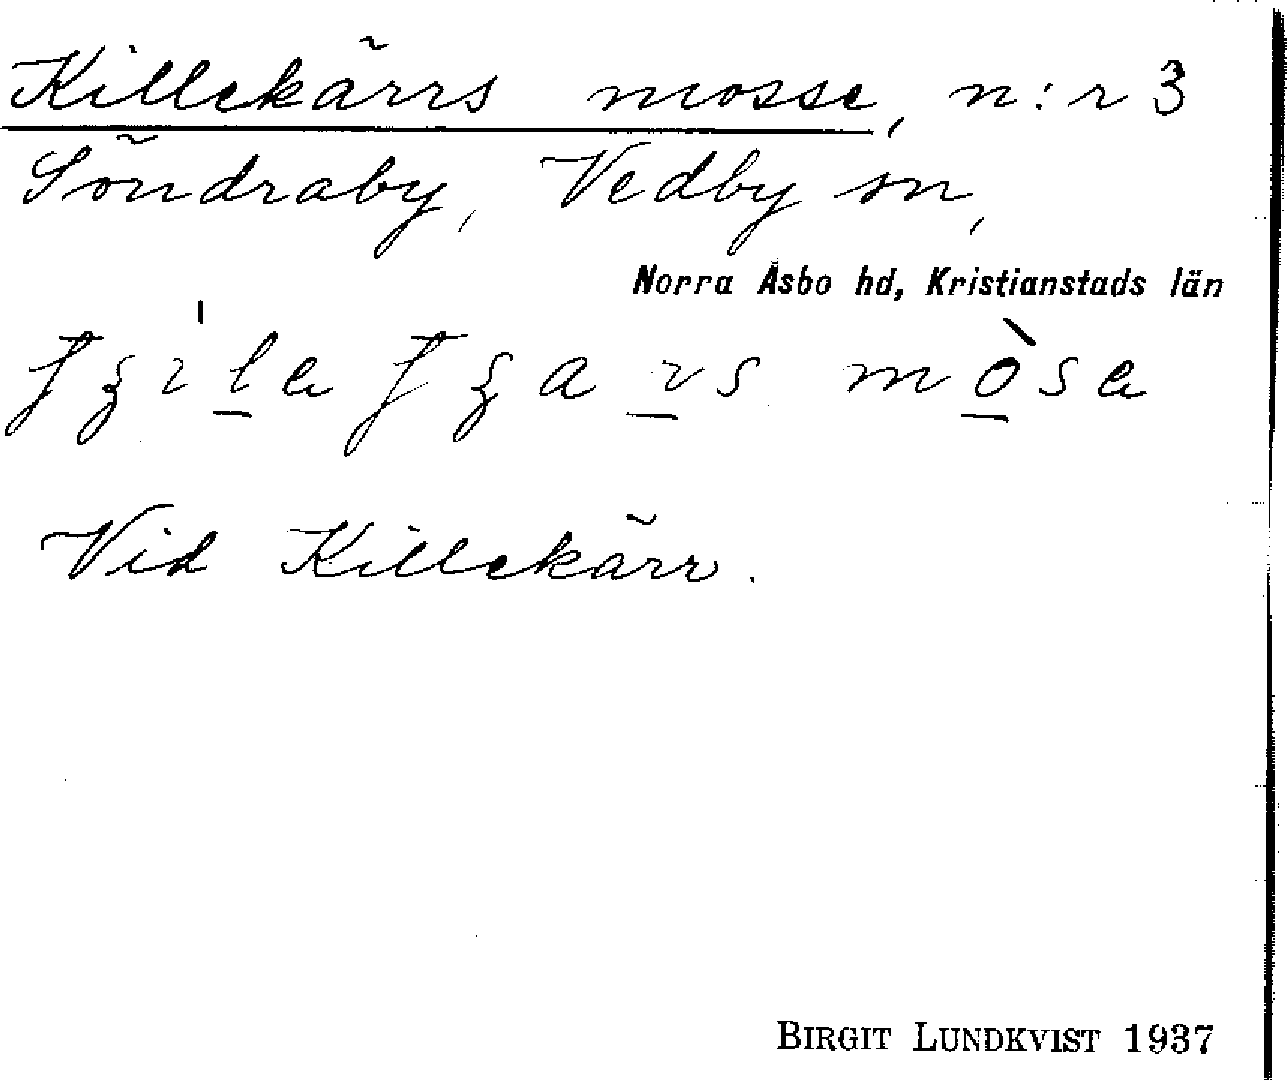 Killekärrs mosse, n:r 3
Söndraby, Vedby sn,
Norra Åsbo hd, Kristianstads län
Vid Killekärr.
BIRGIT LUNDKVIST 1937